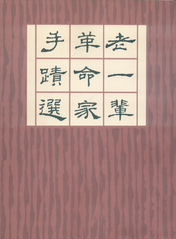 老一輩
革命家
手蹟選